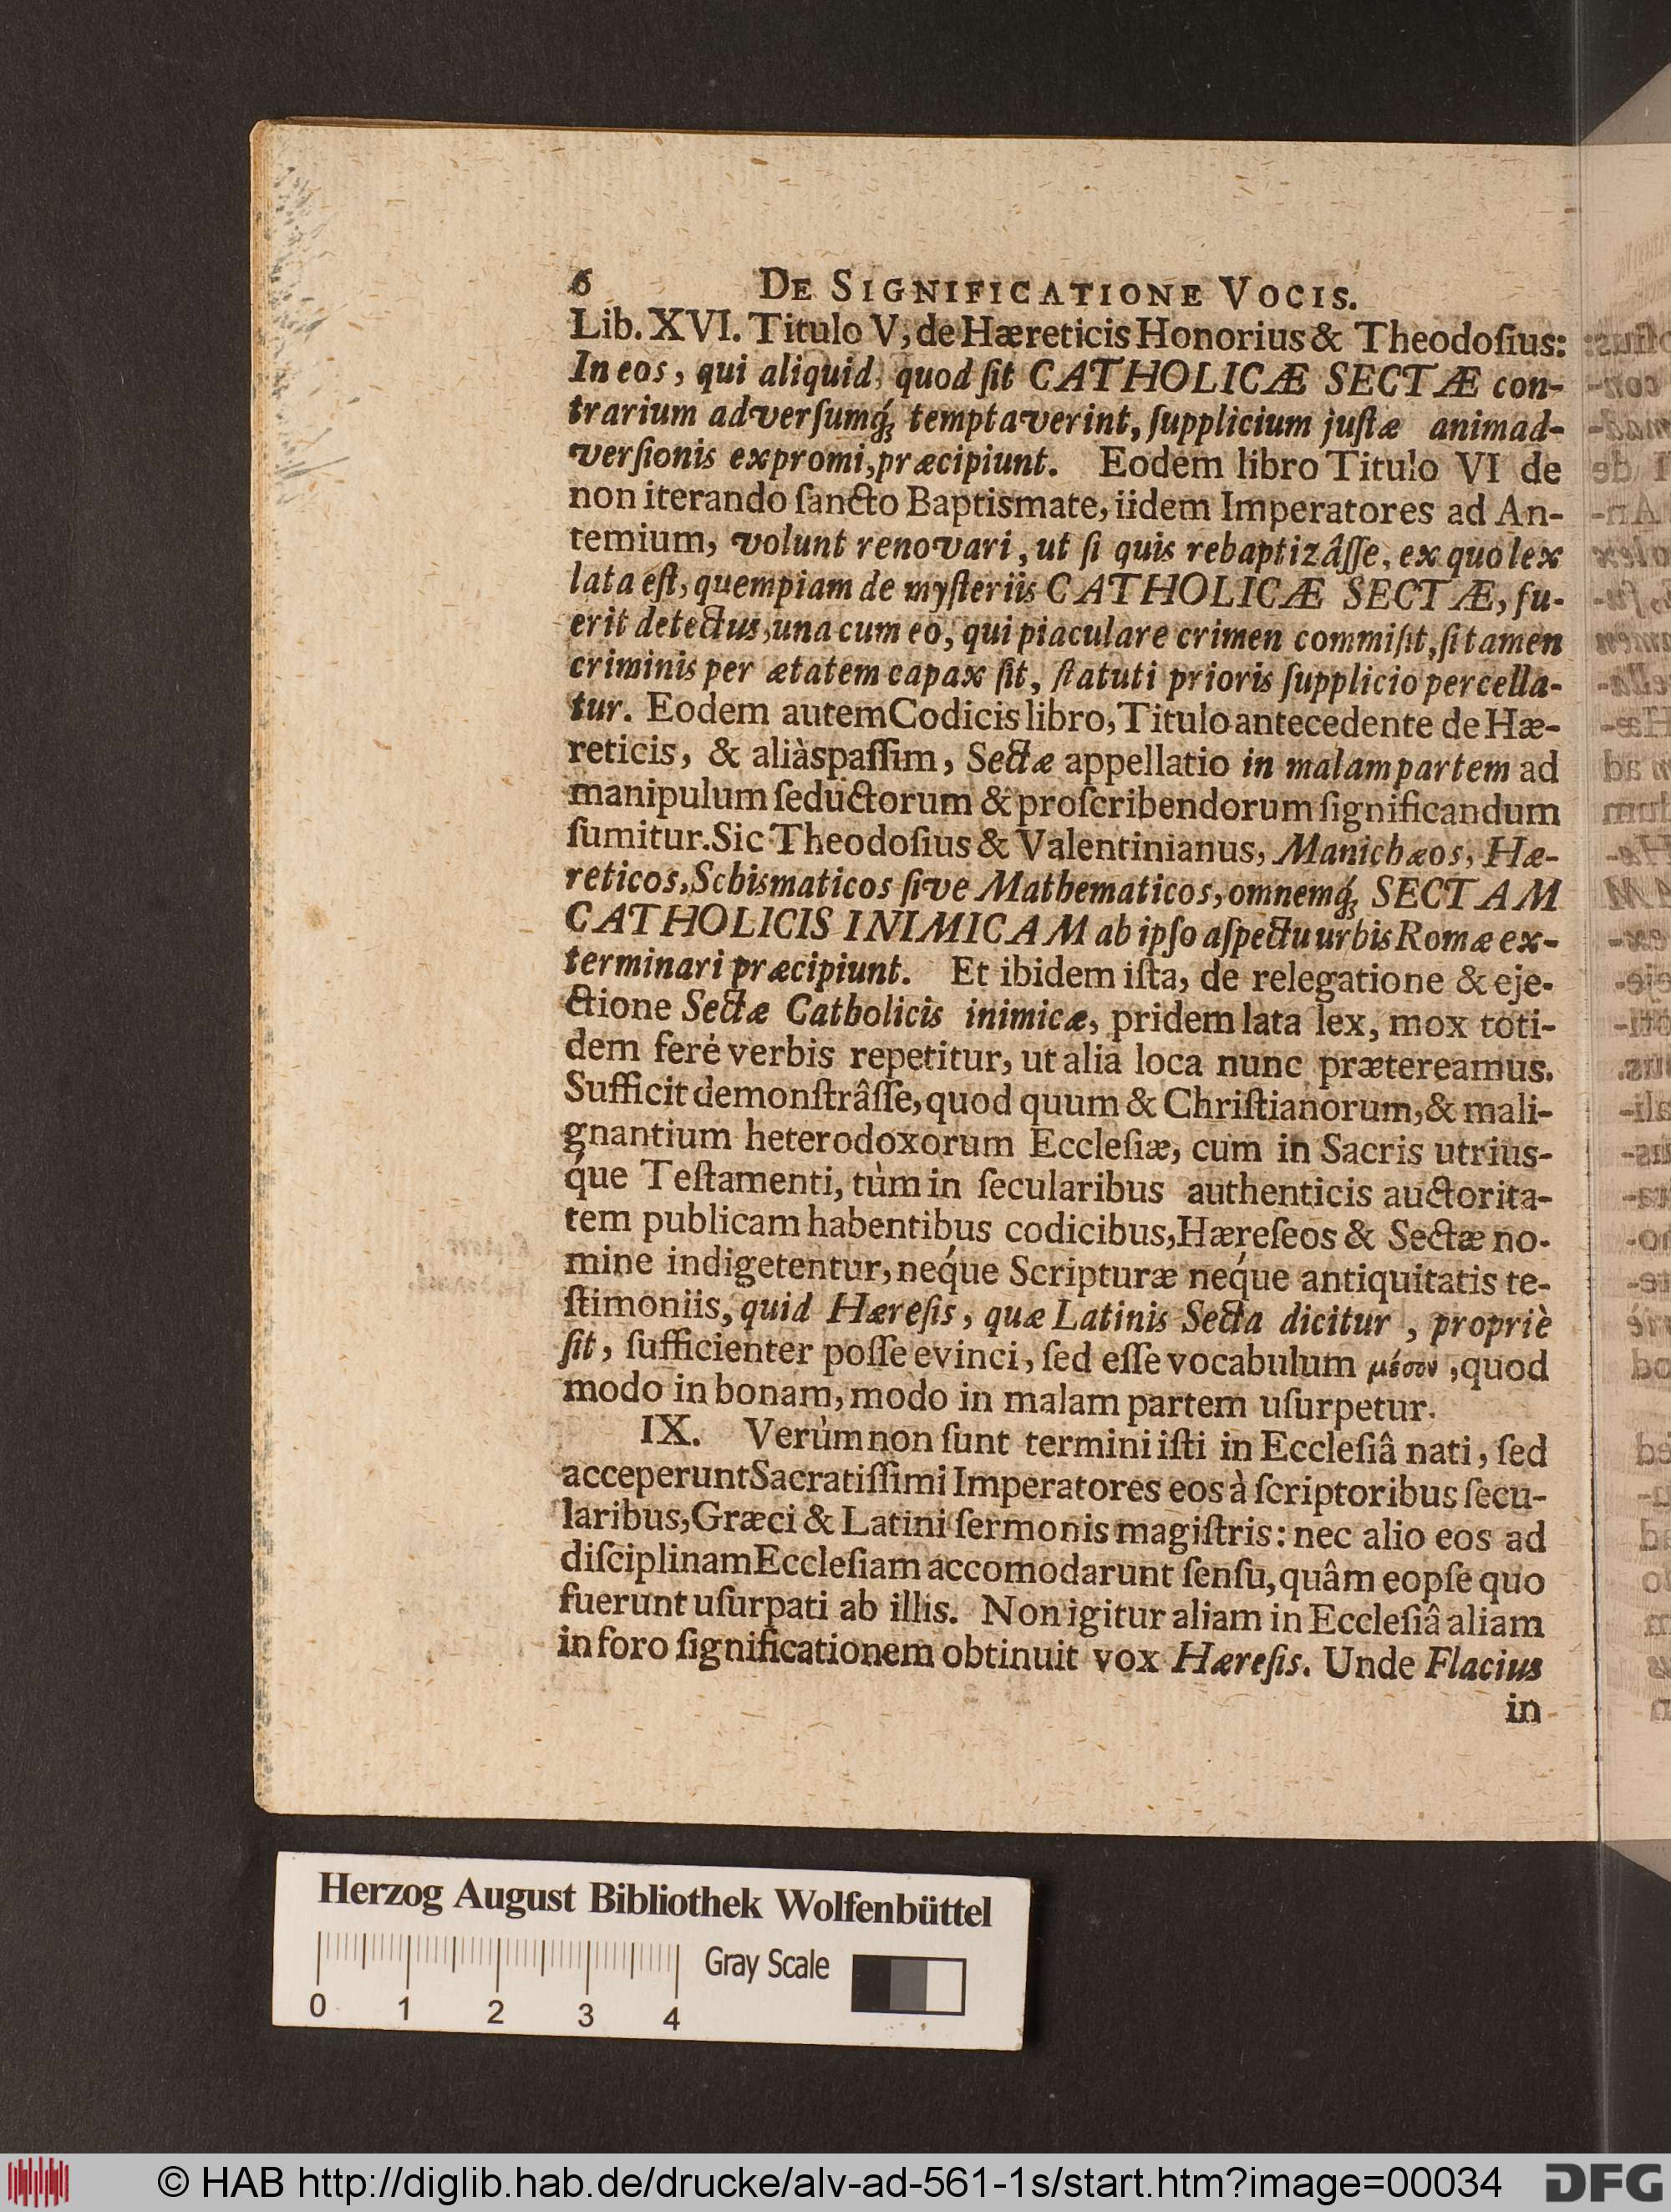 6 DE SIGNIFICATIONE VOCIS.
Lib. XVI. Titulo V, de Hæreticis Honorius & Theodoſius:
In eos, qui aliquid, quod ſit CATHOLICÆ SECTÆ con-
trarium adverſumq́; temptaverint, ſupplicium juſtæ animad-
verſionis expromi, præcipiunt. Eodem libro Titulo VI de
non iterando ſancto Baptismate, iidem Imperatores ad An-
temium, volunt renovari, ut ſi quis rebaptizâſſe, ex quo lex
lata eſt, quempiam de myſteriis CATHOLICÆ SECTÆ, fu-
erit detectus, una cum eo, qui piaculare crimen commiſit, ſi tamen
criminis per ætatem capax ſit, ſtatuti prioris ſupplicio percella-
tur. Eodem autem Codicis libro, Titulo antecedente de Hæ-
reticis, & aliàs paſſim, Sectæ appellatio in malam partem ad
manipulum ſeductorum & proſcribendorum ſignificandum
ſumitur. Sic Theodoſius & Valentinianus, Manichæos, Hæ-
reticos, Schismaticos ſive Mathematicos, omnemq́; SECTAM
CATHOLICIS INIMICAM ab ipſo aſpectu urbis Romæ ex-
terminari præcipiunt. Et ibidem iſta, de relegatione & eje-
ctione Sectæ Catholicis inimicæ, pridem lata lex, mox toti-
dem ferè verbis repetitur, ut alia loca nunc prætereamus.
Sufficit demonſtrâſſe, quod quum & Chriſtianorum, & mali-
gnantium heterodoxorum Eccleſiæ, cum in Sacris utrius-
q́ue Teſtamenti, tùm in ſecularibus authenticis auctorita-
tem publicam habentibus codicibus, Hæreſeos & Sectæ no-
mine indigetentur, neq́ue Scripturæ neq́ue antiquitatis te-
ſtimoniis, quid Hæreſis, quæ Latinis Secta dicitur, propriè
ſit, ſufficienter poſſe evinci, ſed eſſe vocabulum μέσον, quod
modo in bonam, modo in malam partem uſurpetur.
IX. Verùm non ſunt termini iſti in Eccleſiâ nati, ſed
acceperunt Sacratiſſimi Imperatores eos à ſcriptoribus ſecu-
laribus, Græci & Latini ſermonis magiſtris: nec alio eos ad
diſciplinam Eccleſiam accomodarunt ſenſu, quâm eopſe quo
fuerunt uſurpati ab illis. Non igitur aliam in Eccleſiâ aliam
in foro ſignificationem obtinuit vox Hæreſis. Unde Flacius
in
Herzog August Bibliothek Wolfenbüttel
Gray Scale
0 1 2 3 4
© HAB http://diglib.hab.de/drucke/alv-ad-561-1s/start.htm?image=00034
DFG